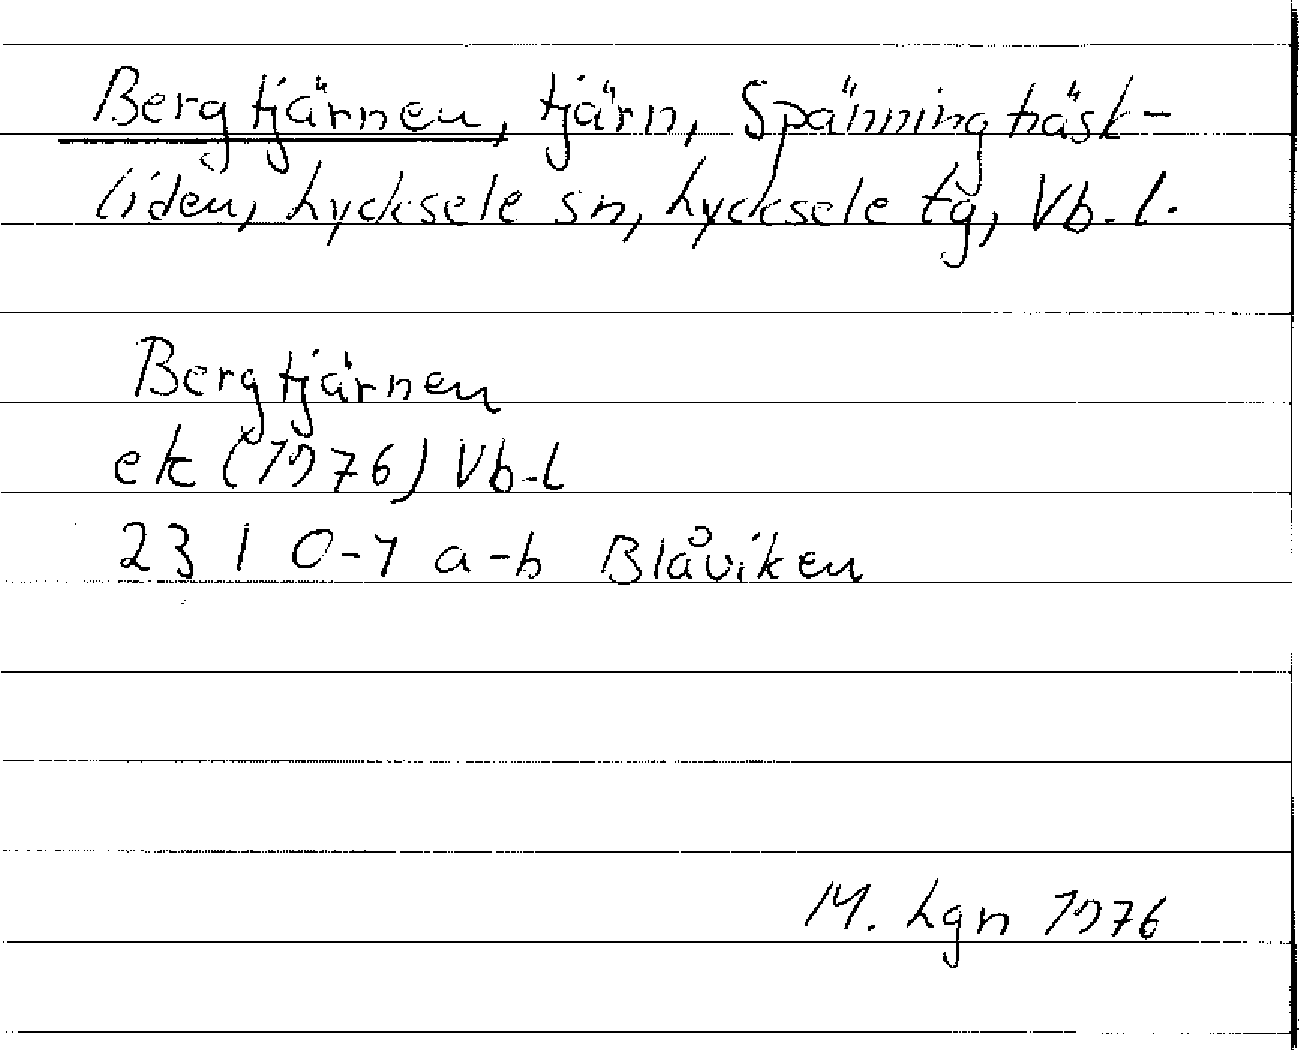 Bergtjärnen, tjärn, Spänningträsk-
liden, Lycksele sn, Lycksele tg, Vb. l.
Bergtjärnen
ek (1976) Vb-l
23 I 0-1 a-b Blåviken
M. Lgn 1976